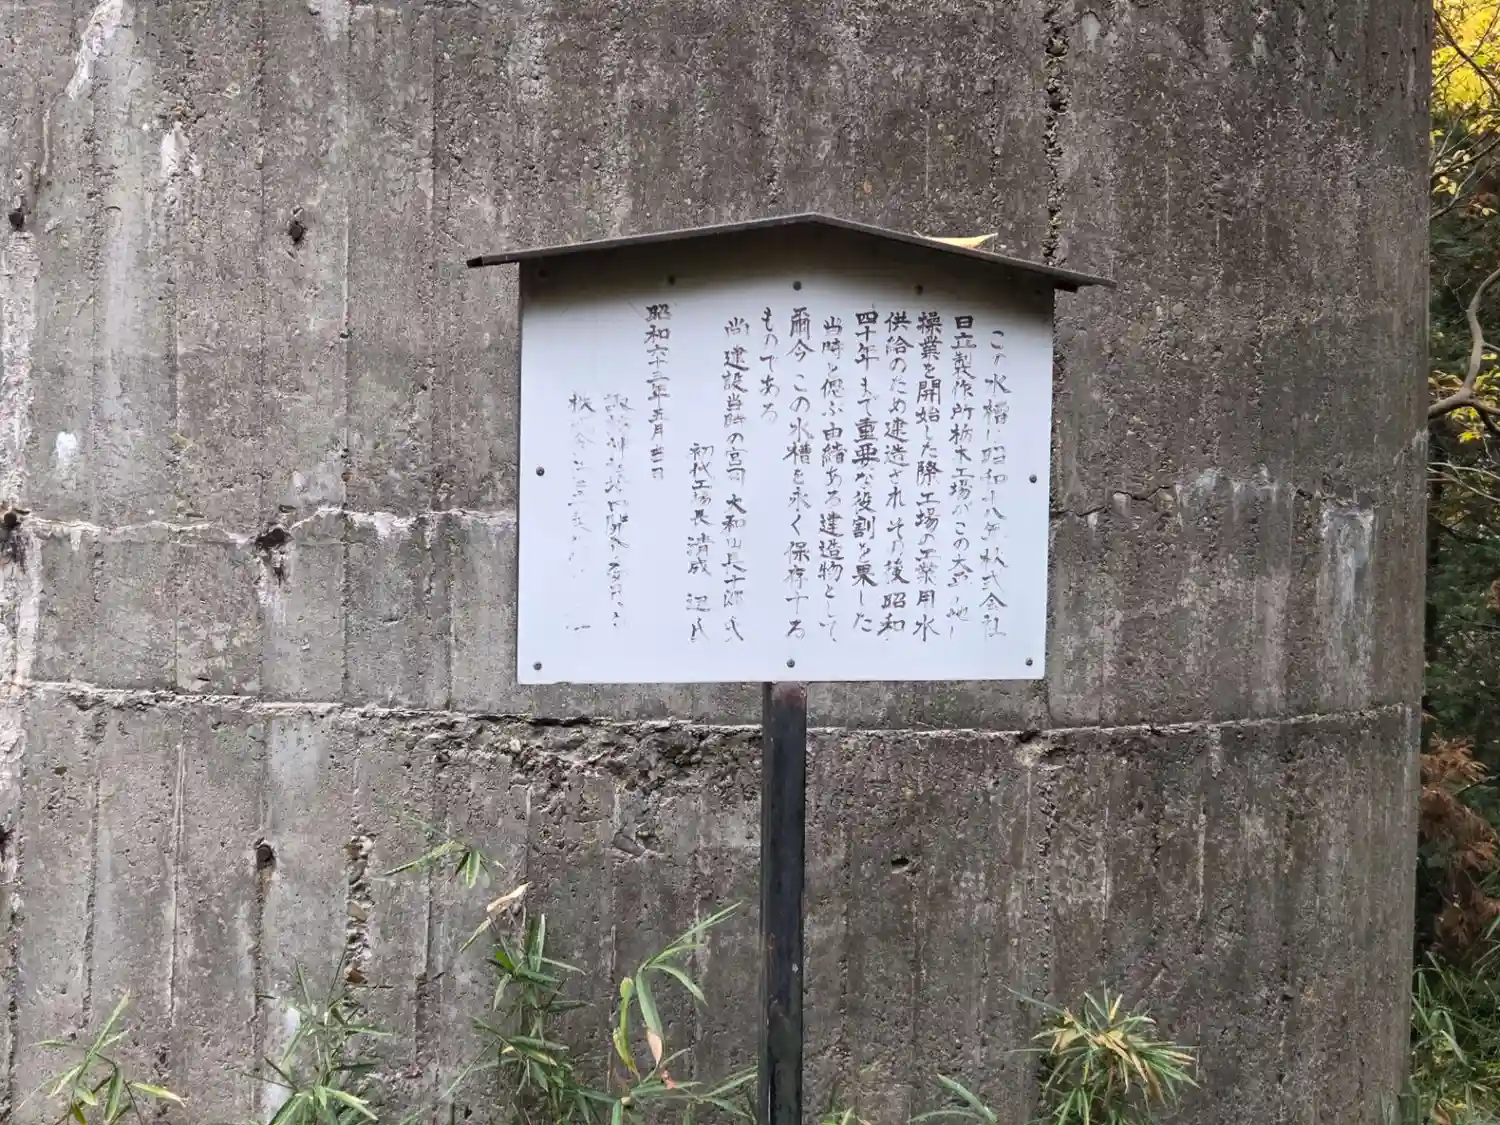 この水槽は昭和十八年株式会社
日立製作所栃木工場がこの大平の地に
操業を開始した際工場の工業用水
供給のため建造されその後昭和
四十年まで重要な役割を果した
当時を偲ぶ由緒ある建造物として
爾今この水槽を永く保存する
ものである
尚建設当時の宮司大和田長十郎氏
初代工場長清成迪氏
昭和六十三年五月吉日
株式会社日立